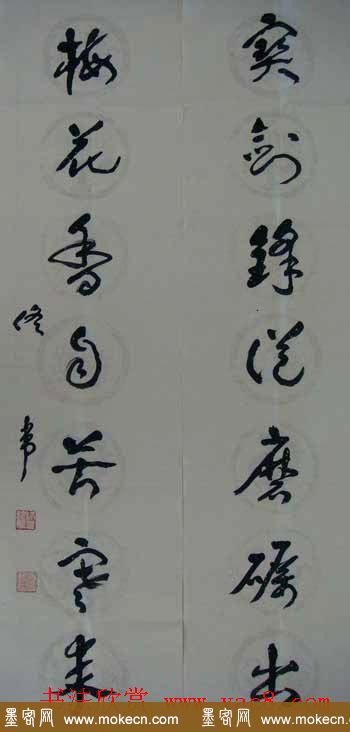 寶劍鋒從磨礪出
梅花香自苦寒來
佟韋
书法欣赏 www.yac8.com
墨客网 www.mokecn.com 墨客网 www.mokecn.com